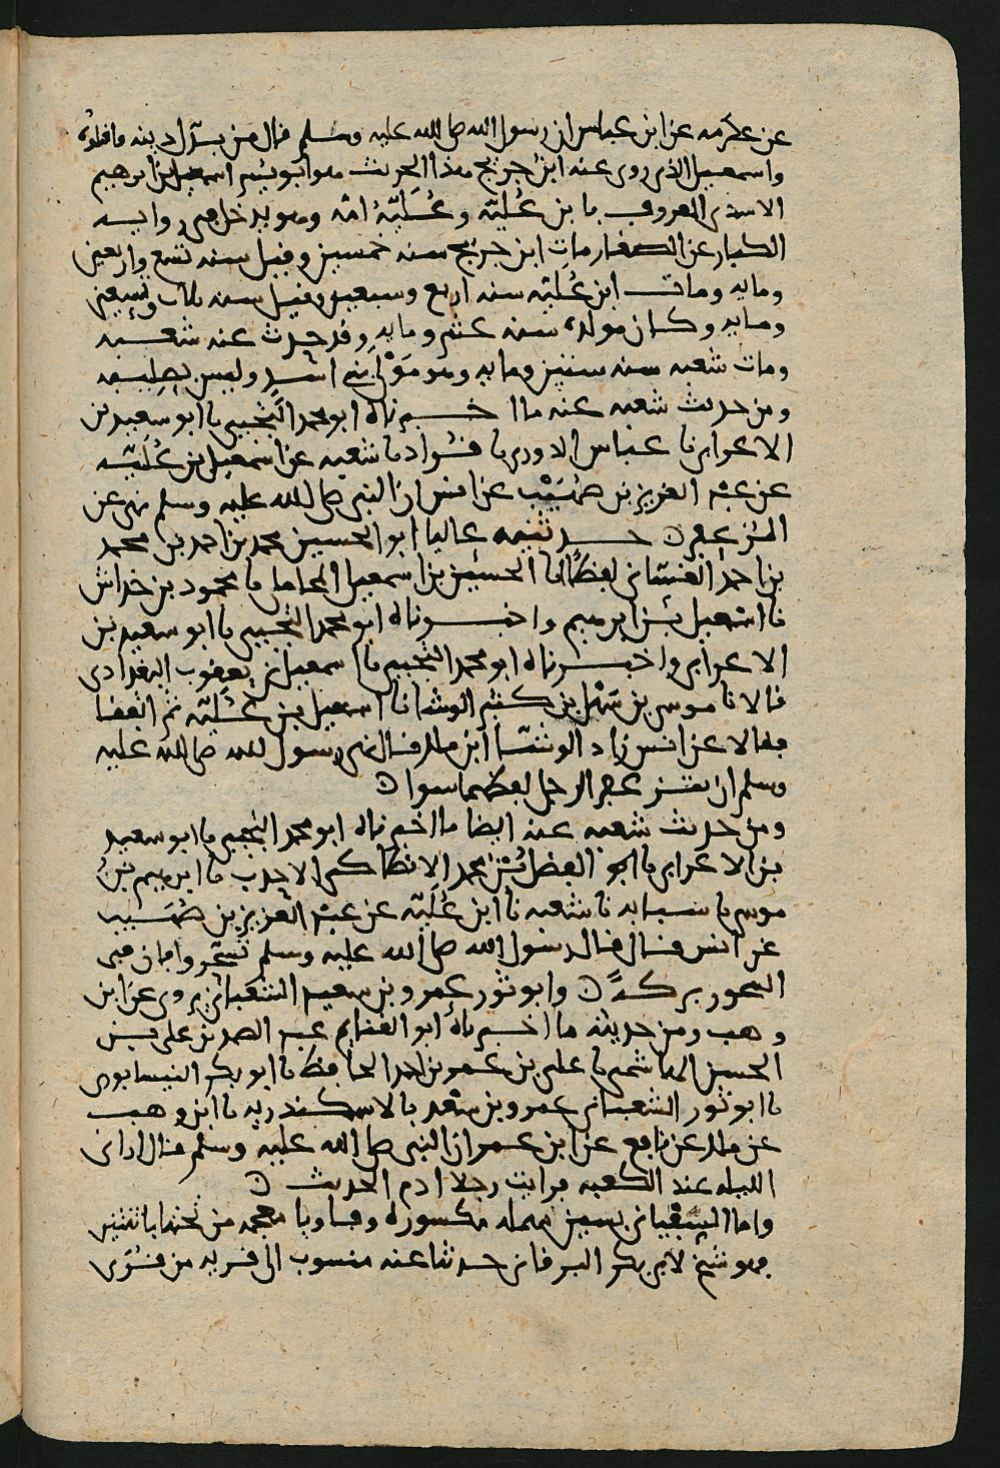 عن عكرمه عن ابن عباس ان رسول الله صلى الله عليه وسلم قال من بدل دينه فاقتلوه
واسمعيل الذى روى عنه ابن جريج هذا الحديث هو ابو بشر اسمعيل بن ابرهيم
الاسدى المعروف بابن عُليّه وعُلَيّهُ امّه وهو يدخل فى روايه
الكبار عن الصغار مات ابن جريج سنه خمسين وقيل سنه تسع واربعين
ومايه ومات ابن عُليّه سنه اربع وتسعين وقيل سنه ثلاث وتسعين
ومايه وكان مولده سنه عشر ومايه وقد حدث عنه شعبه
ومات شعبه سنه ستين ومايه وهو مَوْلى بنى اسد وليس بصليبه
ومن حديث شعبه عنه ما اخبرناه ابو محمد التجيبى نا ابو سعيد بن
الاعرابى نا عباس الدورى نا قُراد نا شعبه عن اسمعيل بن عُليّه
عن عبد العزيز بن صُهَيْب عن انس ان النبى صلى الله عليه وسلم نهى عن
المزعفر ه حدثنيه عاليا ابو الحسين محمد بن احمد بن محمد
بن احمد الغسّانى لفظًا انا الحسين بن اسمعيل المحاملى نا محمود بن خداش
نا اسمعيل بن ابرهيم واخبرناه ابو محمد التجيبى نا ابو سعيد بن
الاعرابى واخبرناه ابو محمد التجيبى نا اسمعيل بن يعقوب البغدادى
قالا نا موسى بن سَهْل بن كثير الوشا نا اسمعيل بن عُليّه ثم اتفقا
فقالا عن انس زاد الوشّا ابن ملك قال نهى رسول الله صلى الله عليه
وسلم ان يتزعفر الرجل لفظهما سوا ه
ومن حديث شعبه عنه ايضا ما اخبرناه ابو محمد التجيبى نا ابو سعيد
بن الاعرابى نا ابو الفضل بن محمد الانطاكى الاحدب نا ابرهيم بن
موسى نا شبابه نا شعبه نا ابن عُلَيّه عن عبد العزيز بن صُهَيب
عن انس قال قال رسول الله صلى الله عليه وسلم تسحّروا فان فى
السحور بركهً ه وابو ثور عمرو بن سعيد الشعبانى يروى عن ابن
وهب ومن حديثه ما اخبرناهُ ابو الغنايم عبد الصمد بن على بن
الحسين الهاشمى نا على بن عمر بن احمد الحافظ نا ابو بكر النيسابورى
نا ابو ثور الشعبانى عمرو بن سعد بالاسكندريه نا ابن وهب
عن ملك عن نافع عن ابن عمر ان النبى صلى الله عليه وسلم قال ارانى
الليله عند الكعبه فرايت رجلا ادم الحديث ه
واما السيفيانى بسين مهمله مكسوره وفا ويا معجمه من تحتها باثنتين
فهو شيخ لابى بكر البرقانى حدثنا عنه منسوب الى قريه من قرى